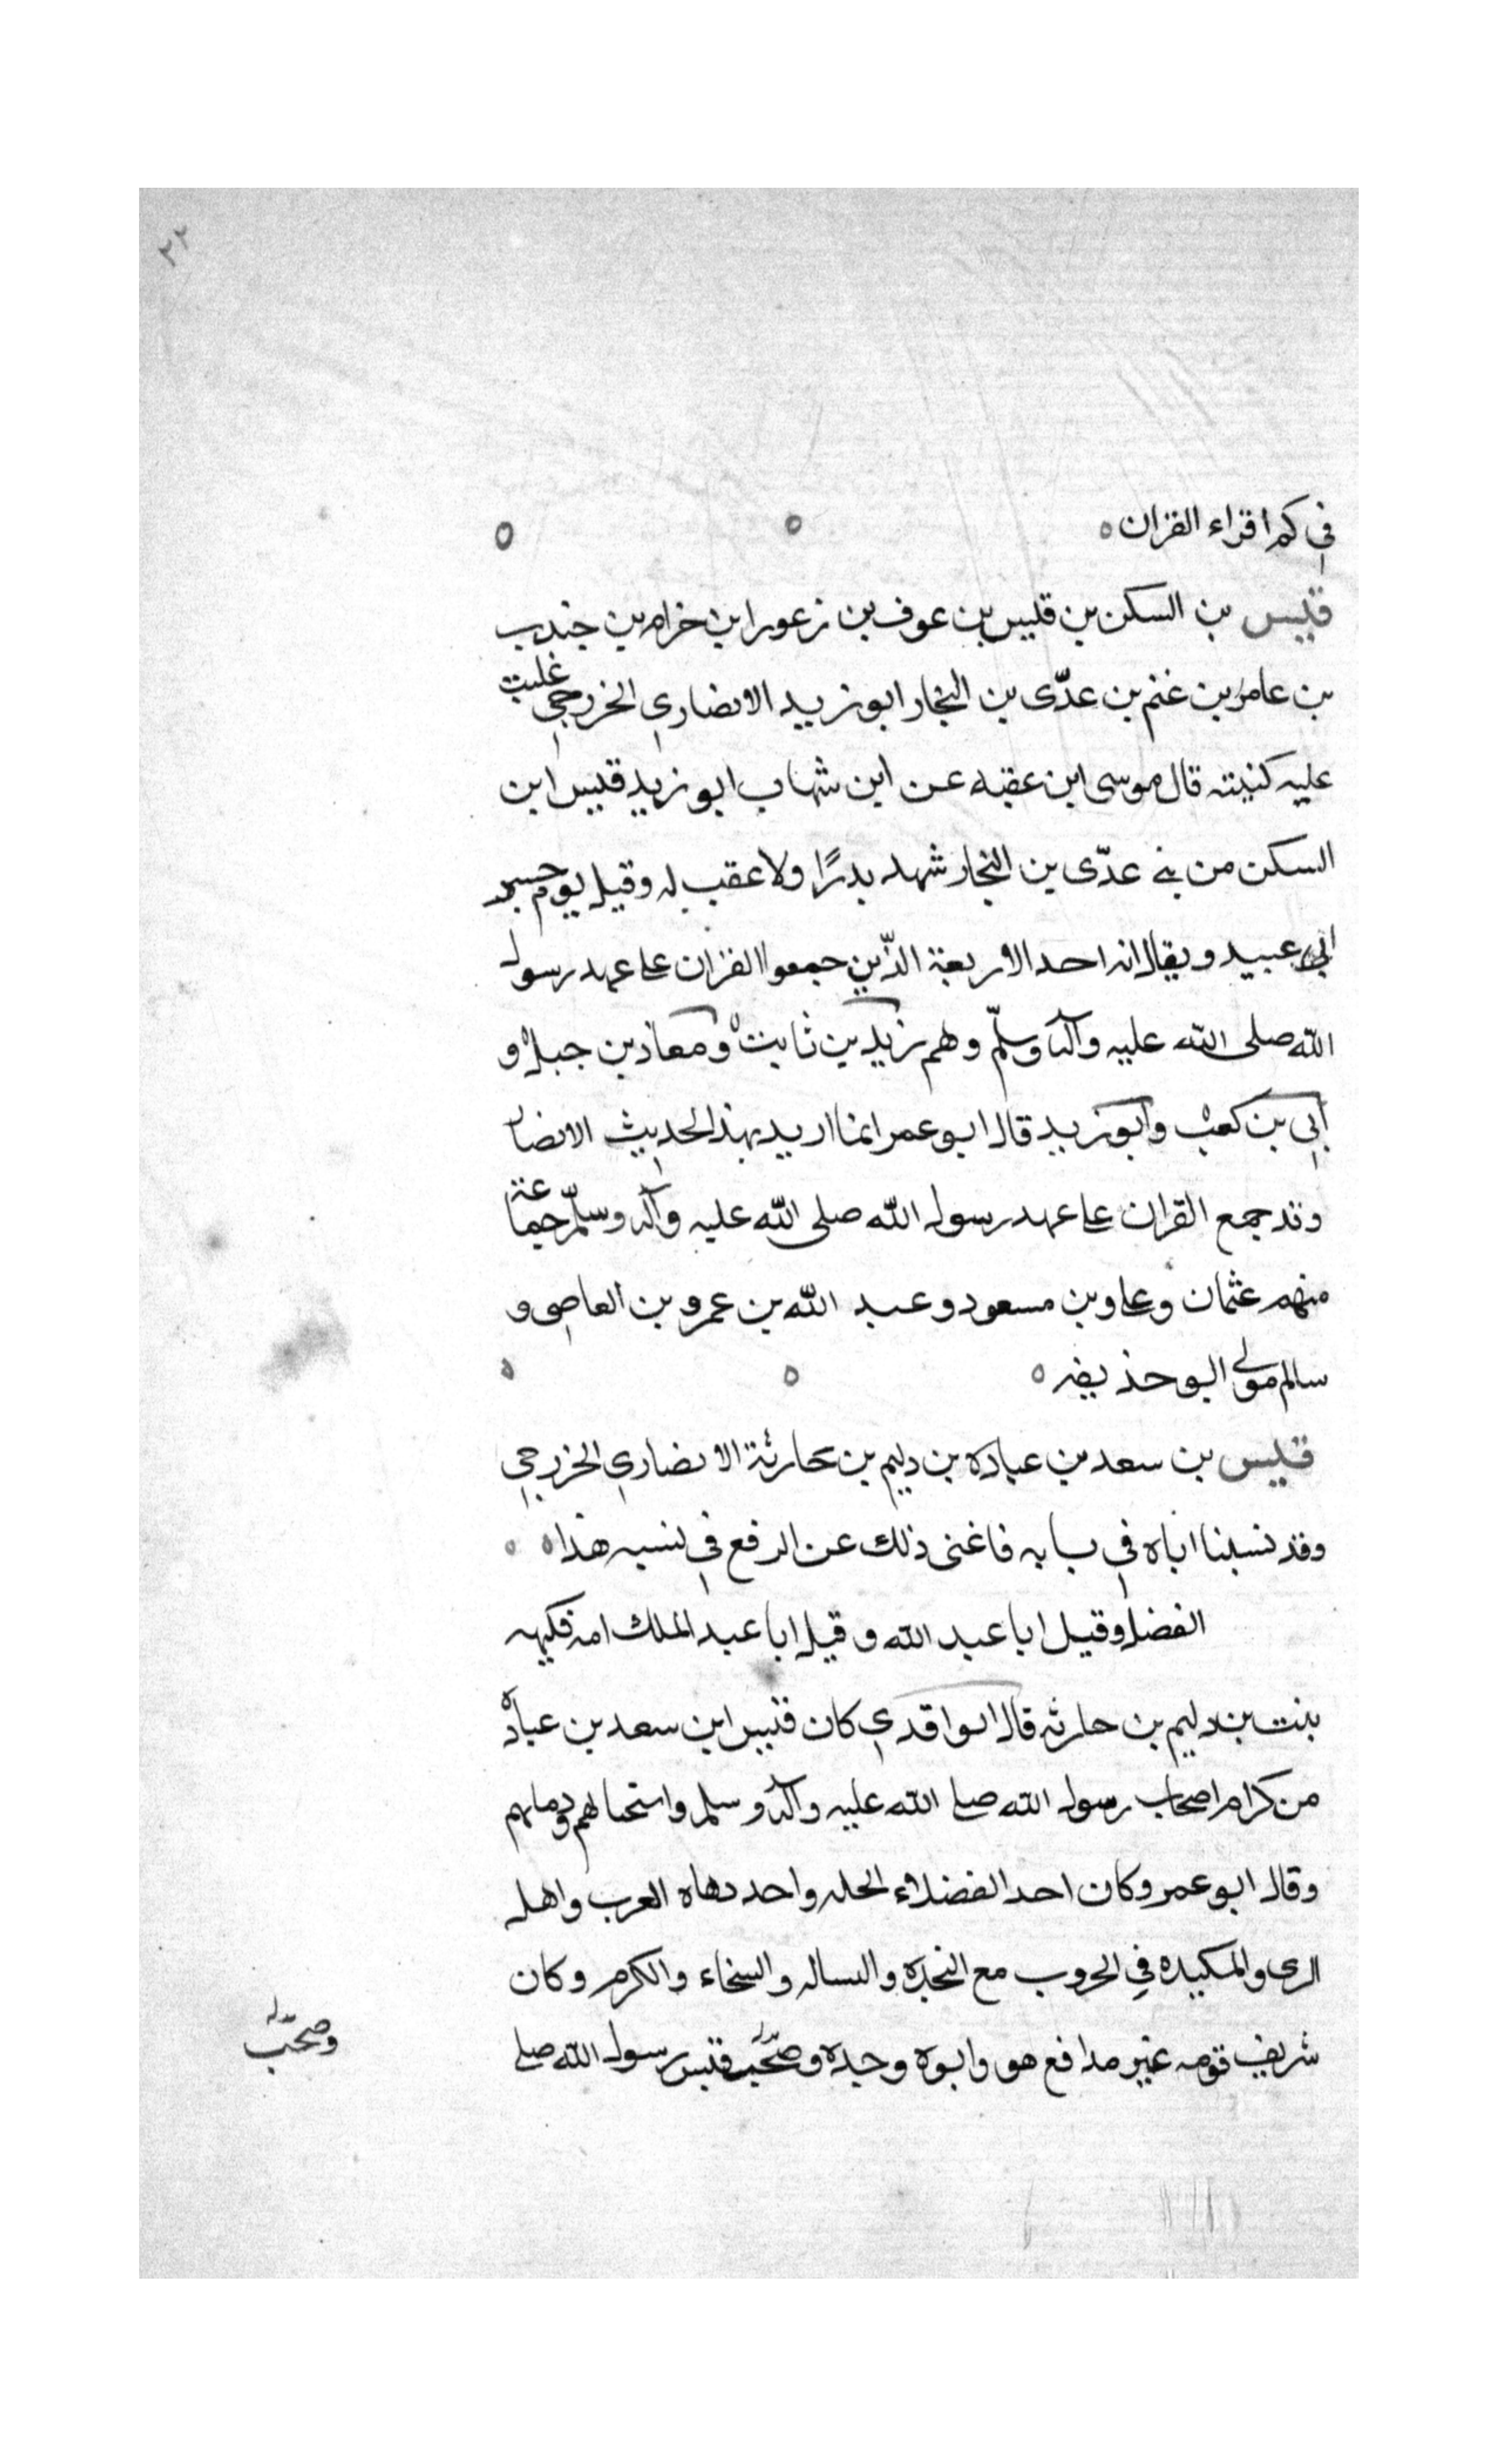 ٢٢
في كم اقراء القران ه
قيس بن السكن بن قيس بن عوف بن زعورا بن حرام بن جندب
بن عامر بن غنم بن عدّى بن النجار ابو زيد الانصاري الخزرجي غلبت
عليه كنيته قال موسى ابن عقبه عن ابن شهاب ابو زيد قيس ابن
السكن من بني عدّى بن النجار شهد بدرًا ولا عقب له وقيل يوم جسر
ابي عبيد ويقال انه احد الاربعة الذّين جمعوا القران على عهد رسول
الله صلى الله عليه وآله وسلّم وهم زيد بن ثابت ومعاذ بن جبل و
أبي بن كعب وابو زيد قال ابو عمر انما اريد بهذ الحديث الانصار
وقد جمع القران على عهد رسول الله صلى الله عليه وآله وسلّم جماعة
منهم عثمان وعلى وبن مسعود وعبد الله بن عمرو بن العاصي و
سالم مولى ابو حذيفه ه
قيس بن سعد بن عباده بن دليم بن حارثة الانصاري الخزرجي
وقد نسبنا اباه في بابه فاغنى ذلك عن الرفع في نسبه هذا ه
الفضل وقيل ابا عبد الله وقيل ابا عبد الملك امه فكيهه
بنت بن دليم بن حارثه قال الواقدي كان قيس ابن سعد بن عباده
من كرام اصحاب رسول الله صلى الله عليه وآله وسلم واسخياهم ودهاتهم
وقال ابو عمر وكان احد الفضلاء الجله واحد دهاه العرب واهل
الرى والمكيده في الحروب مع النجده والبساله والسخاء والكرم وكان
شريف قومه غير مدافع هو وابوه وجده وصحب قيس رسول الله صلى
وصحب